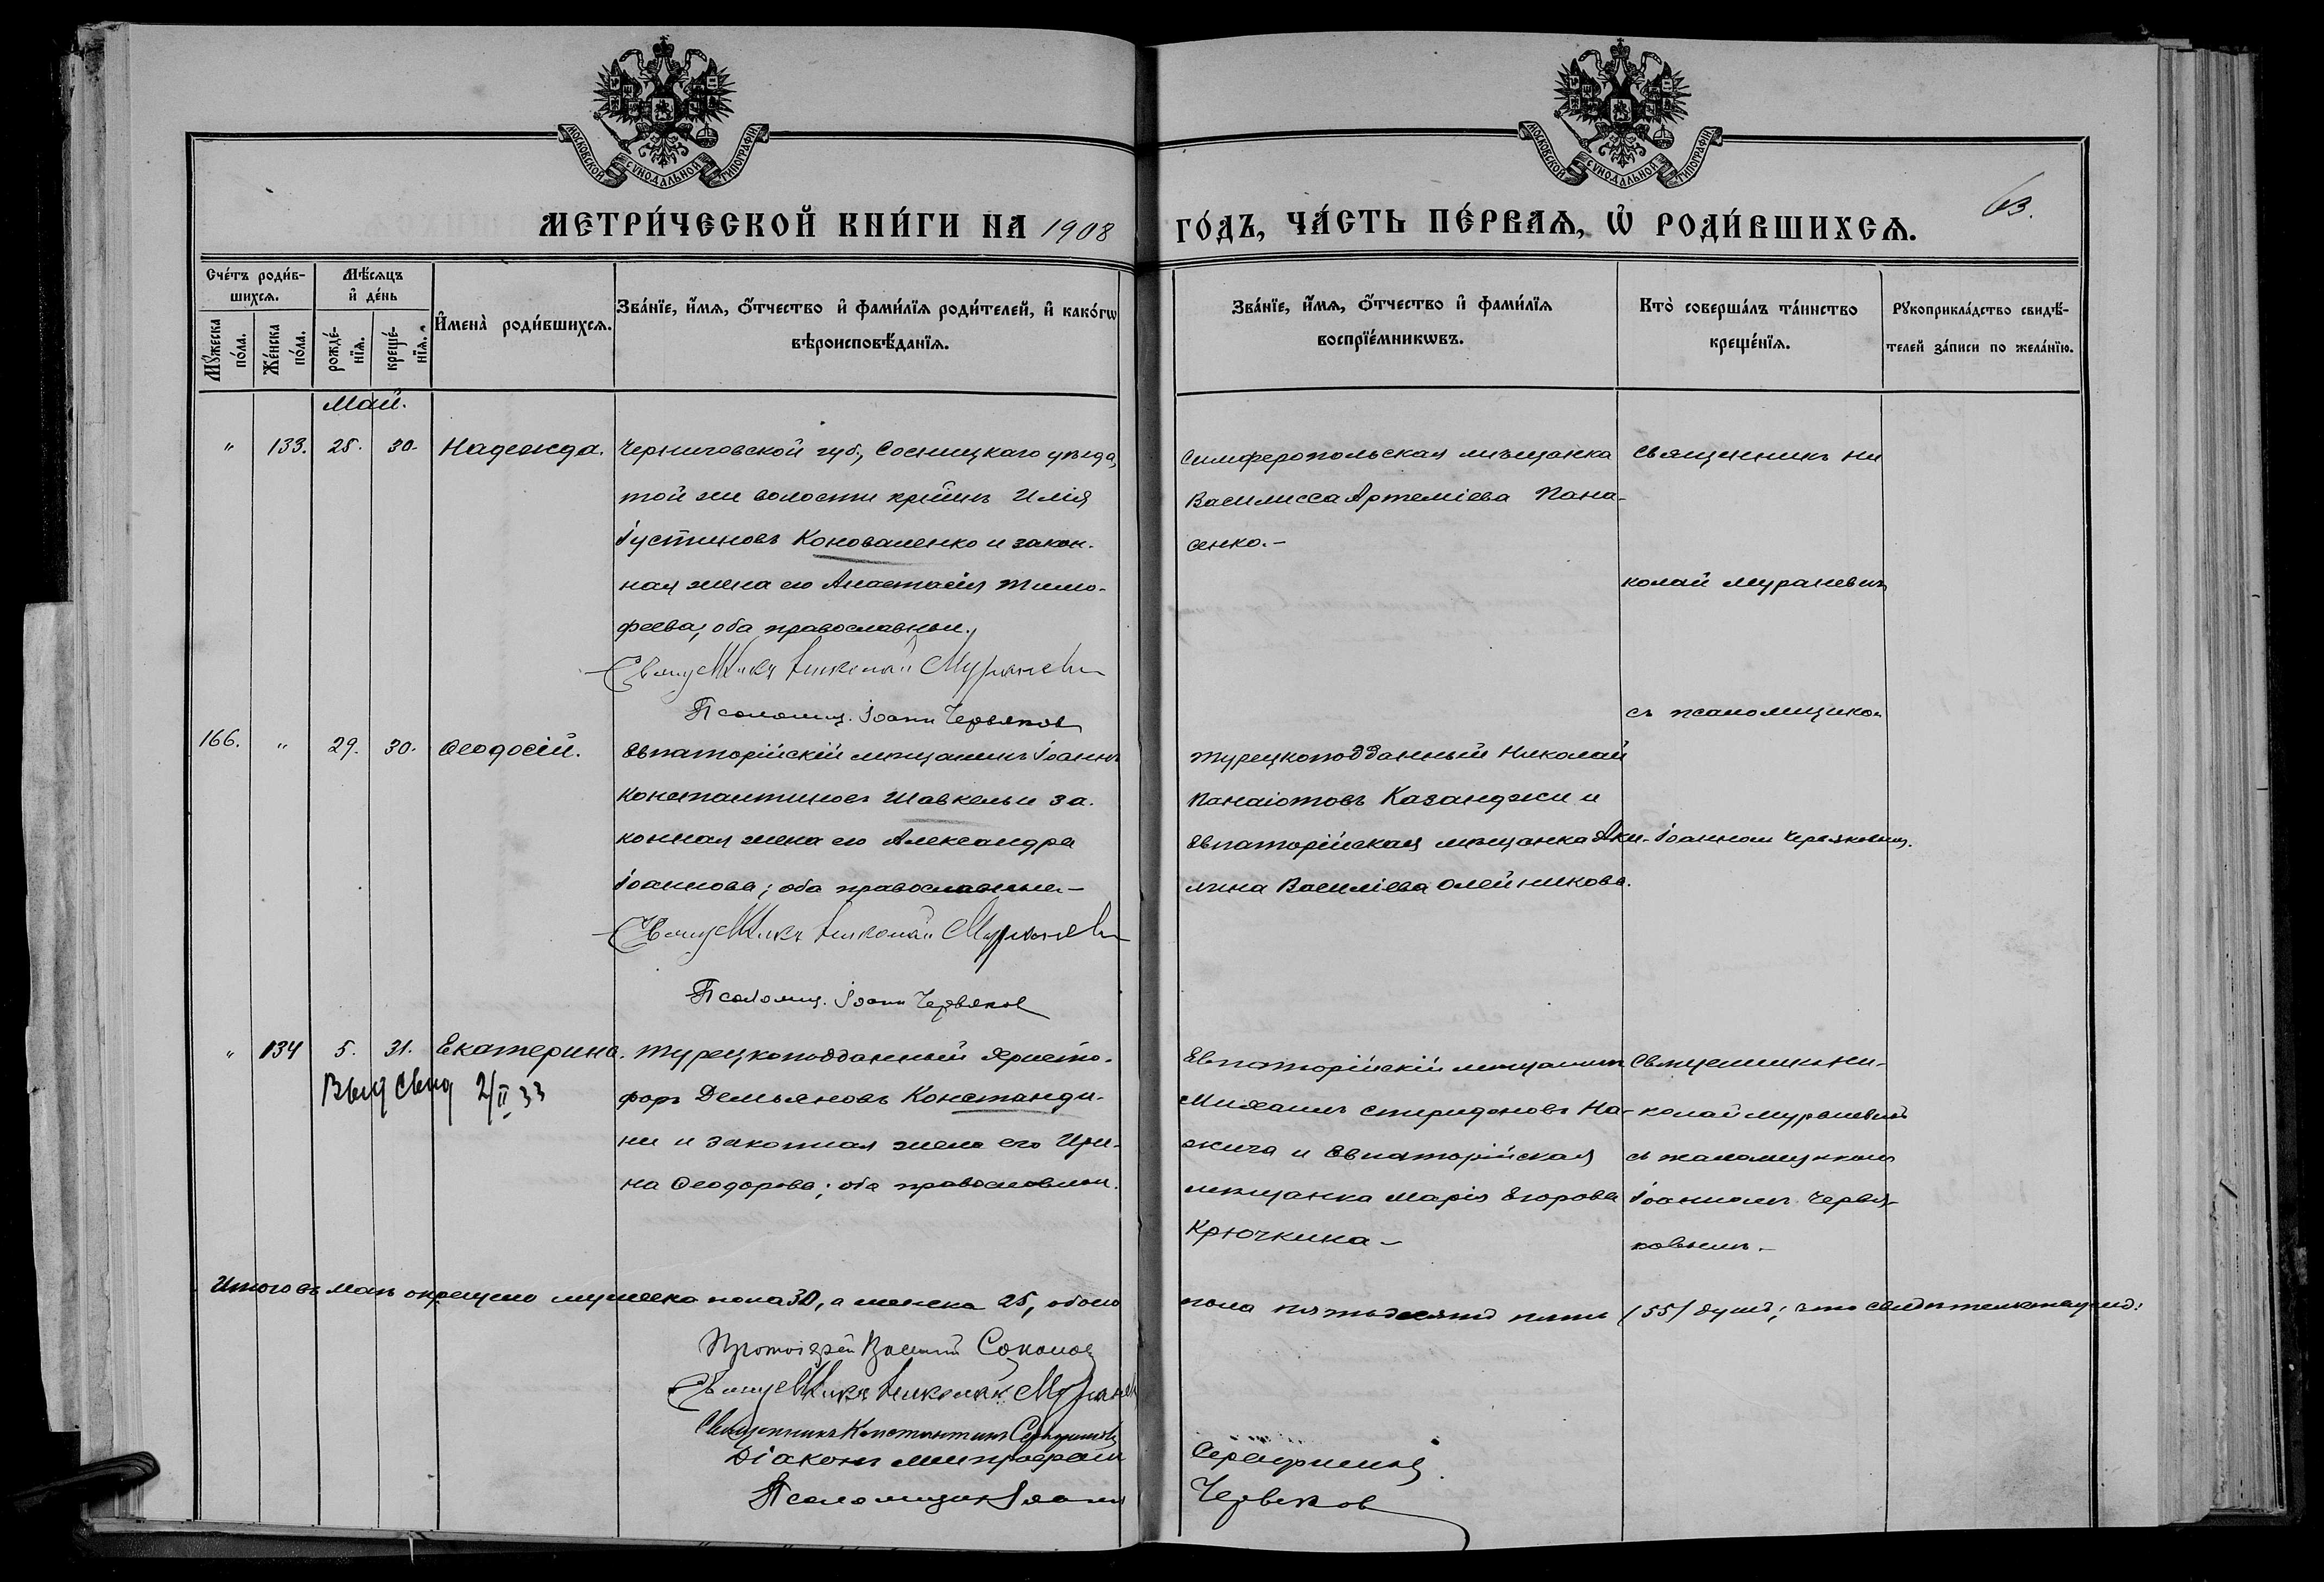 МОСКОВСКОЙ СѴНОДАЛЬНОЙ ТИПОГРАФІИ
МОСКОВСКОЙ СѴНОДАЛЬНОЙ ТИПОГРАФІИ
МЕТРИ́ЧЕСКОЙ КНИ́ГИ НА 1908
ГО́ДЪ, ЧА́СТЬ ПЕ́РВАѦ, Ѡ҆ РОДИ́ВШИХСѦ.
63.
Сче́тъ роди́в-
шихсѧ.
Мꙋ́жеска
по́ла.
Же́нска
по́ла.
Мѣ́сѧцъ
и҆ де́нь
рожде́-
нїѧ.
креще́-
нїѧ.
И҆мена̀ роди́вшихсѧ.
Зва́нїе, и҆́мѧ, ѻ҆́тчество и҆ фами́лїѧ роди́телей, и҆ како́гѡ
вѣроисповѣ́данїѧ.
Зва́нїе, и҆́мѧ, ѻ҆́тчество и҆ фами́лїѧ
воспрїе́мникѡвъ.
Кто̀ соверша́лъ та́инство
креще́нїѧ.
Рꙋкоприкла́дство свидѣ́-
телей за́писи по жела́нїю.
Май.
" 133. 25. 30. Надежда.
Черниговской губ., Сосницкаго уѣзда,
той же волости кр-нинъ Илія
Іустиновъ Коноваленко и закон-
ная жена его Анастасія Тимо-
феева; оба православные.
Священникъ Николай Мураневич
Псаломщ. Іоанн Червяков
Симферопольская мѣщанка
Василисса Артеміева Пана-
сенко.-
Священникъ Ни
колай Мураневичъ
съ псаломщиком
166. " 29. 30. Ѳеодосій.
Евпаторійскій мѣщанинъ Іоаннъ
Константиновъ Шавкелъ и за-
конная жена его Александра
Іоаннова; оба православные.-
Священникъ Николай Мураневич
Псаломщ. Іоанн Червяков
Турецкоподданный Николай
Панаіотовъ Казанджи и
Евпаторійская мѣщанка Аки-
лина Василіева Олейникова.
Іоанном Червяковым.
" 134 5. 31. Екатерина.
Выд свид 2/II 33
Турецкоподданный Христо-
форъ Демьяновъ Констанди-
ни и законная жена его Ири-
на Ѳеодорова; оба православные.
Евпаторійскій мѣщанинъ
Михаилъ Спиридоновъ На-
жига и Евпаторійская
мѣщанка Марія Егорова
Крючкина-
Священникъ Ни-
колай Мураневичъ
съ псаломщиком
Іоанномъ Червя-
ковымъ.-
Итого въ маѣ окрещено мужеска пола 30, а женска 25, обоего
пола пятьдесятъ пять /55/ душъ; что свидѣтельствуемъ:
Протоіерей Василій Соколов
Священникъ Николай Мураневич
Священникъ Константинъ Серафимов
Діаконъ Митрофанъ
Серафимов.
Псаломщикъ Іоаннъ
Червяков